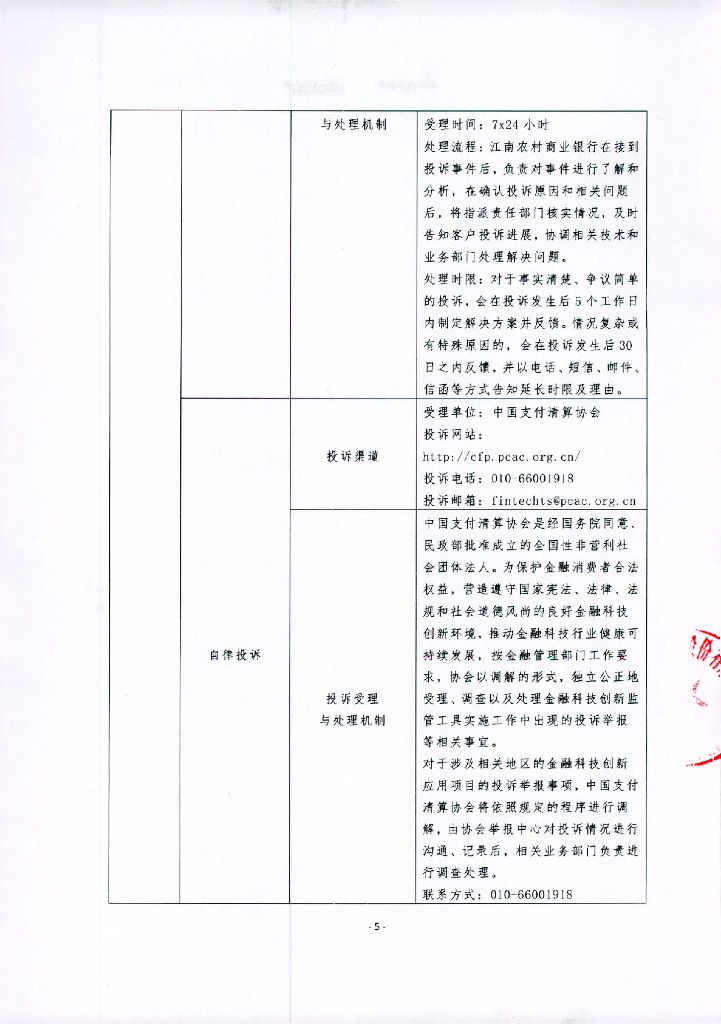 与处理机制
受理时间：7x24 小时
处理流程：江南农村商业银行在接到
投诉事件后，负责对事件进行了解和
分析，在确认投诉原因和相关问题
后，将指派责任部门核实情况，及时
告知客户投诉进展，协调相关技术和
业务部门处理解决问题。
处理时限：对于事实清楚、争议简单
的投诉，会在投诉发生后 5 个工作日
内制定解决方案并反馈。情况复杂或
有特殊原因的，会在投诉发生后 30
日之内反馈，并以电话、短信、邮件、
信函等方式告知延长时限及理由。
自律投诉
投诉渠道
受理单位：中国支付清算协会
投诉网站：
http://cfp.pcac.org.cn/
投诉电话：010-66001918
投诉邮箱：fintechts@pcac.org.cn
投诉受理
与处理机制
中国支付清算协会是经国务院同意、
民政部批准成立的全国性非营利社
会团体法人。为保护金融消费者合法
权益，营造遵守国家宪法、法律、法
规和社会道德风尚的良好金融科技
创新环境，推动金融科技行业健康可
持续发展，按金融管理部门工作要
求，协会以调解的形式，独立公正地
受理、调查以及处理金融科技创新监
管工具实施工作中出现的投诉举报
等相关事宜。
对于涉及相关地区的金融科技创新
应用项目的投诉举报事项，中国支付
清算协会将依照规定的程序进行调
解，由协会举报中心对投诉情况进行
沟通、记录后，相关业务部门负责进
行调查处理。
联系方式：010-66001918
- 5 -